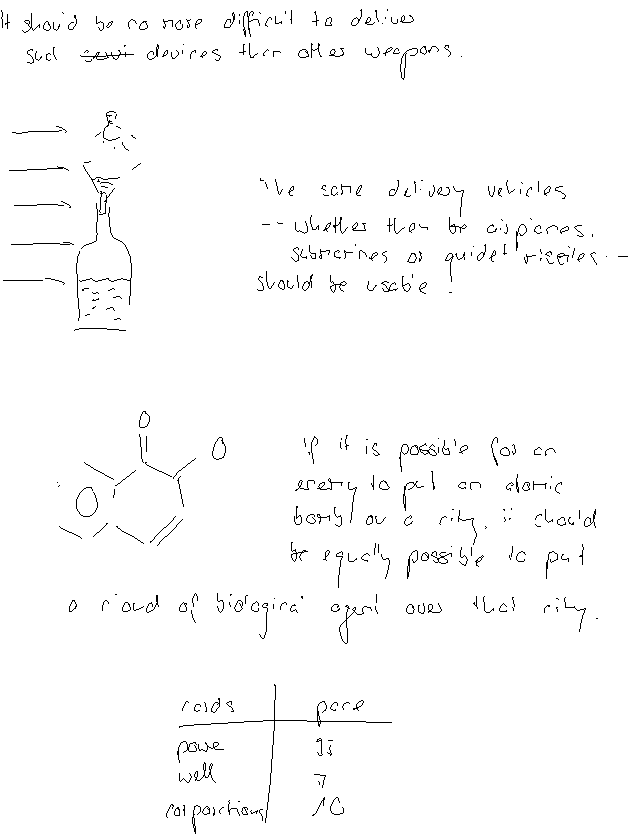 It should be no more difficult to deliver
such devices than other weapons.
The same delivery vehicles
-- whether they be airplanes,
submarines or guided missiles --
should be usable.
O
O
O
If it is possible for an
enemy to put an atomic
bomb on a city, it should
be equally possible to put
a cloud of biological agent over that city.
cards pace
powe 95
well 7
corporations 10